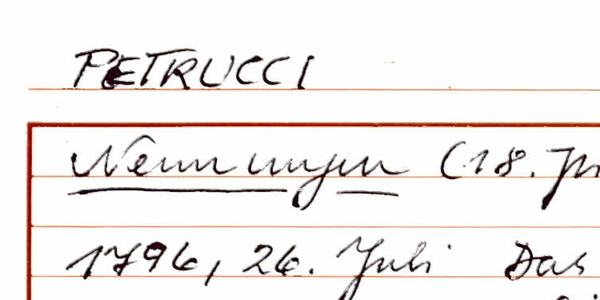 PETRUCCI
Nennungen (18. J
1796, 26. Juli Das